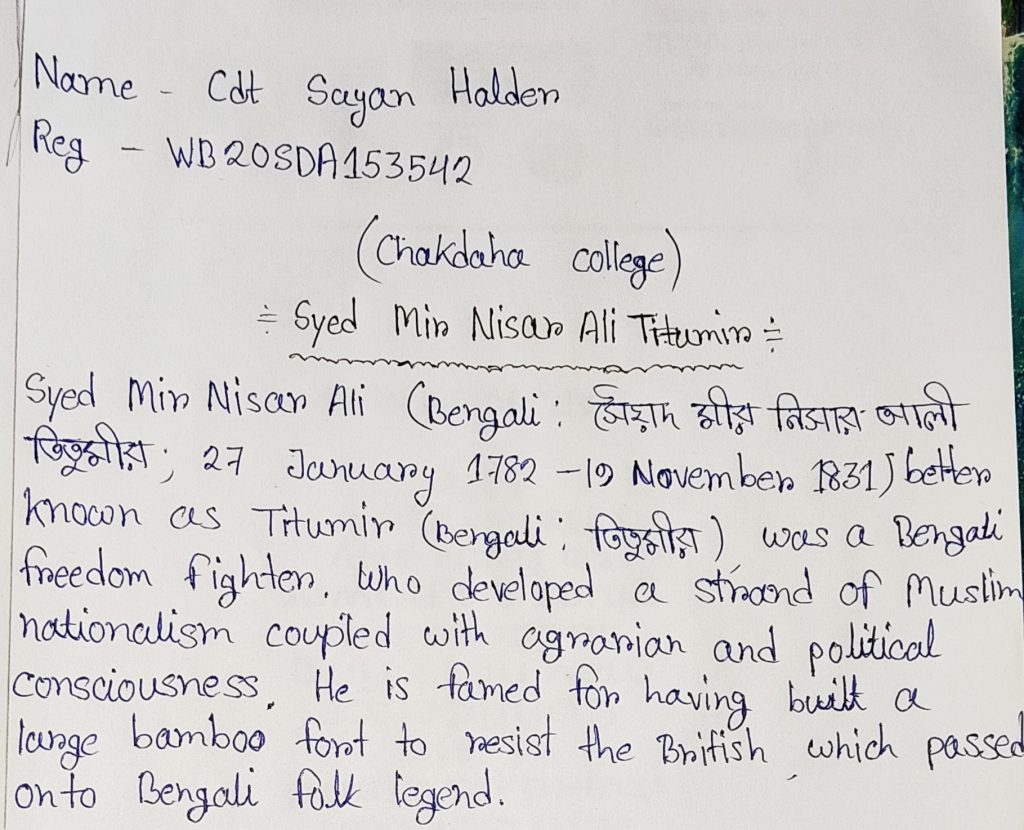 Name - Cdt Sayan Halder
Reg - WB20SDA153542
(Chakdaha college)
÷ Syed Mir Nisar Ali Titumir ÷
Syed Mir Nisar Ali (Bengali : সৈয়দ মীর নিসার আলী
তিতুমীর; 27 January 1782 - 19 November 1831) better
known as Titumir (Bengali : তিতুমীর) was a Bengali
freedom fighter, who developed a strand of Muslim
nationalism coupled with agrarian and political
consciousness. He is famed for having built a
large bamboo fort to resist the British, which passed
onto Bengali folk legend.